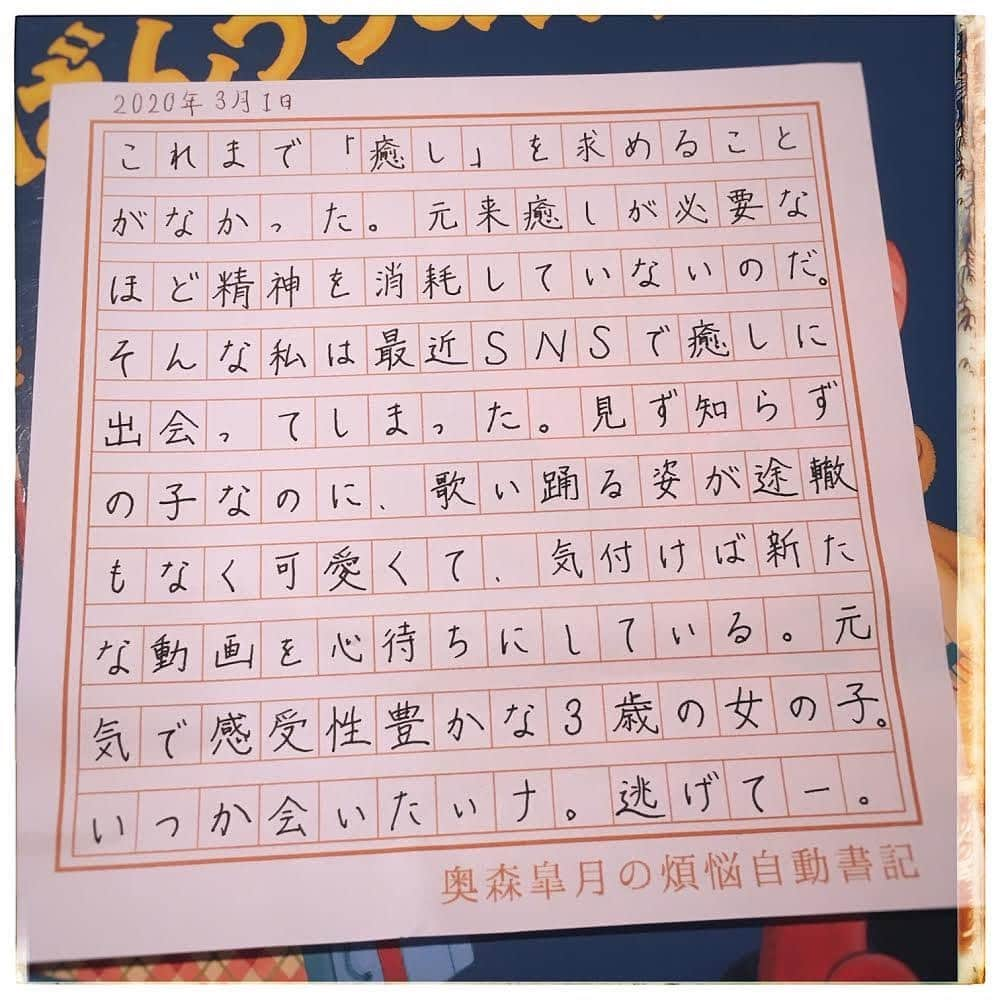 2020年3月1日
これまで「癒し」を求めること
がなかった。元来癒しが必要な
ほど精神を消耗していないのだ。
そんな私は最近SNSで癒しに
出会ってしまった。見ず知らず
の子なのに、歌い踊る姿が途轍
もなく可愛くて、気付けば新た
な動画を心待ちにしている。元
気で感受性豊かな3歳の女の子。
いつか会いたいナ。逃げてー。
奥森皐月の煩悩自動書記